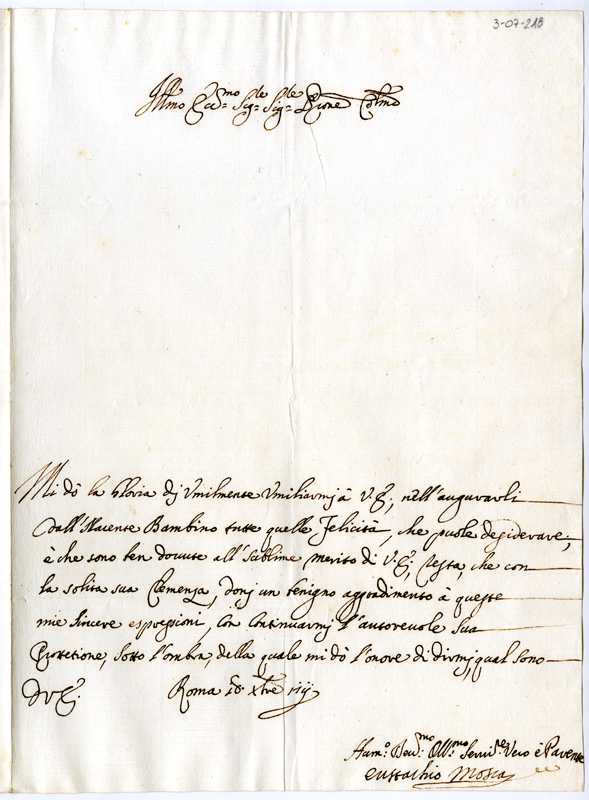 3-07-218
Ill.mo Ecc.mo Sig.re Sig.re P.rone Col.mo
Mi dò la Gloria dj Umilmente Umiliarmj à V.E., nell'augurarli
dall'Nacente Bambino tutte quelle Felicità, che puole degiderare,
è che sono ben dovute all'Sublime merito di V.E., resta, che con
la solita sua Clemenza, donj un benigno aggradimento à queste
mie Sincere espregioni, con Continuarmj l'autorevole Sua
Protetione, Sotto l'ombra, della quale mi dò l'onore di dirmj, qual Sono
D V.E. Roma Xbre
Hum.o Dev.mo Obb.mo Servi.re Vero è
Eustachio Mosca